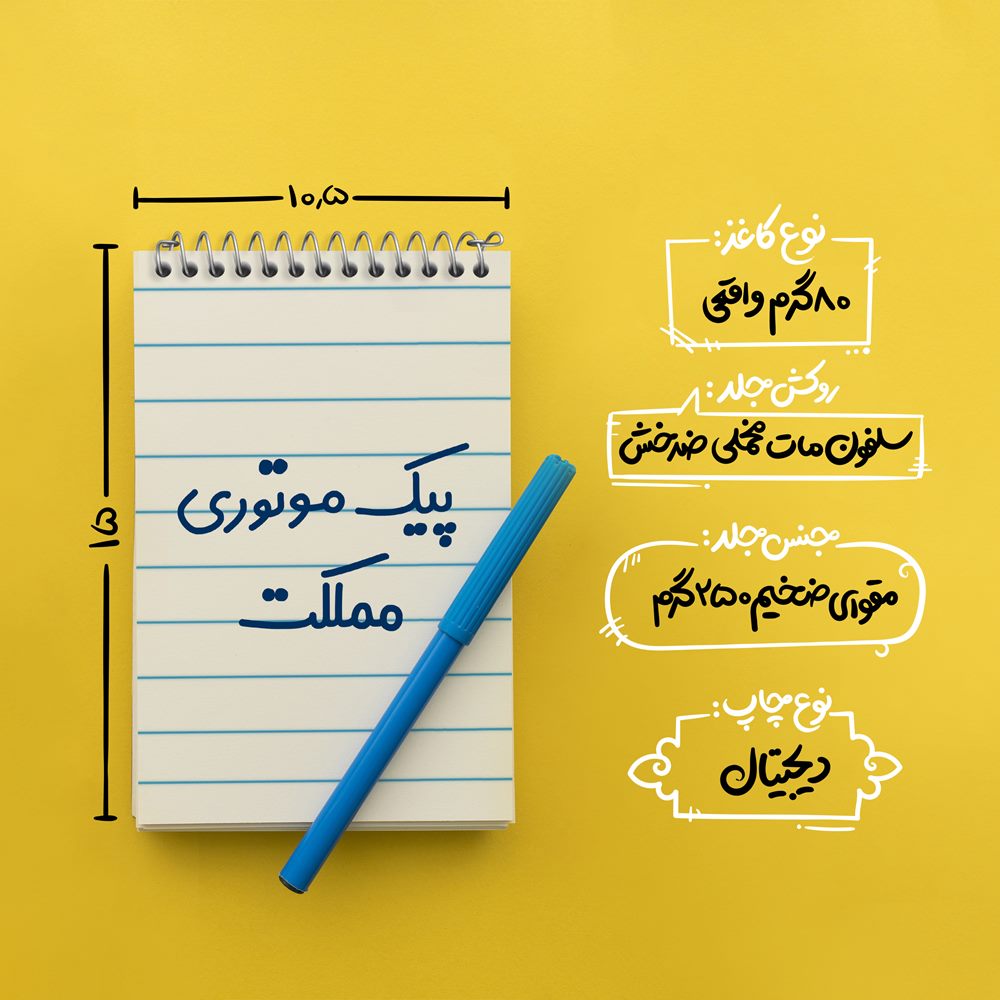 ۱۰,۵
۱۵
پیک موتوری
مملکت
نوع کاغذ:
۸۰گرم واقعی
روکش جلد:
سلفون مات مخملی ضدخش
جنس جلد:
مقوای ضخیم ۲۵۰گرم
نوع چاپ:
دیجیتال